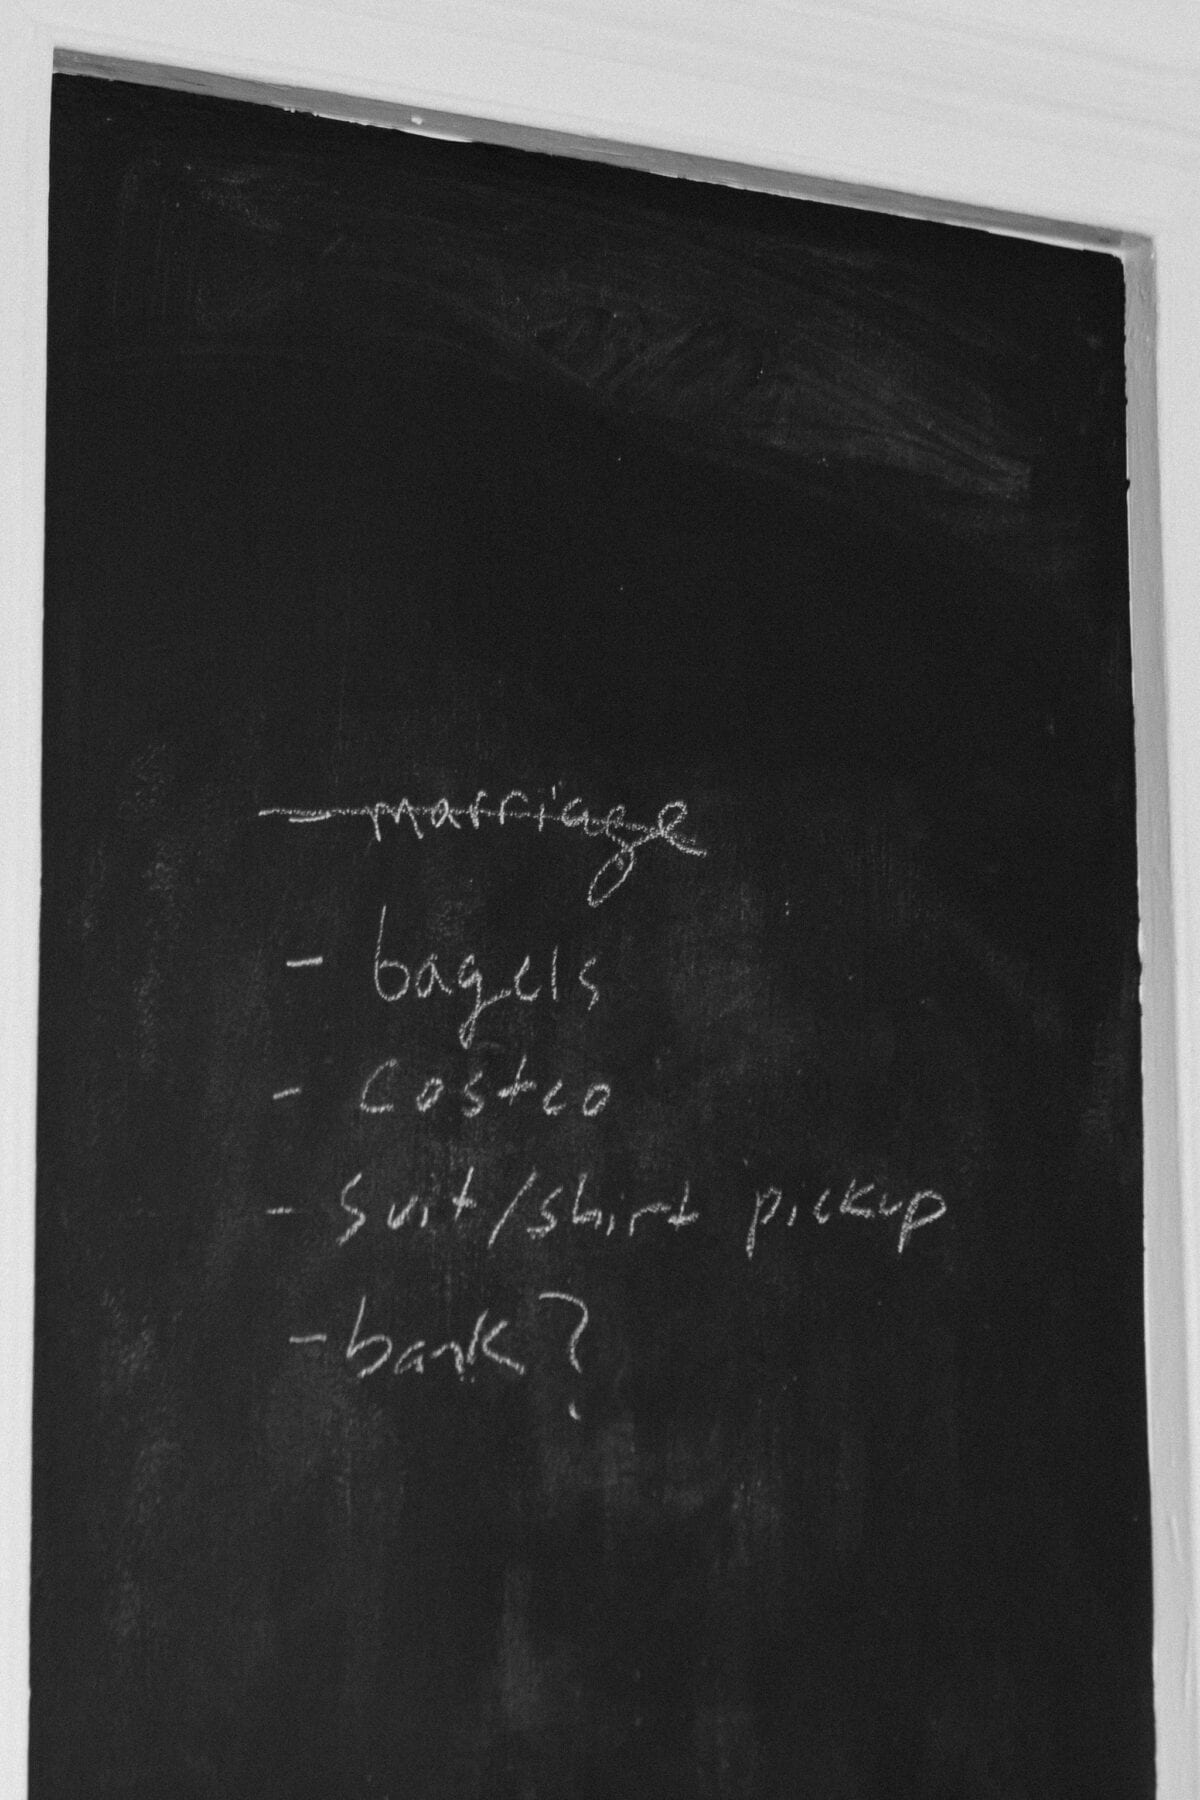 - marriage
- bagels
- costco
- suit/shirt pickup
- bank?